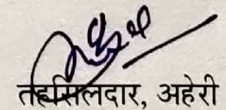 तहसिलदार, अहेरी